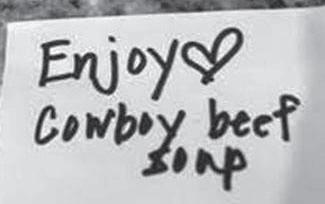 Enjoy♡
Cowboy beef
soup